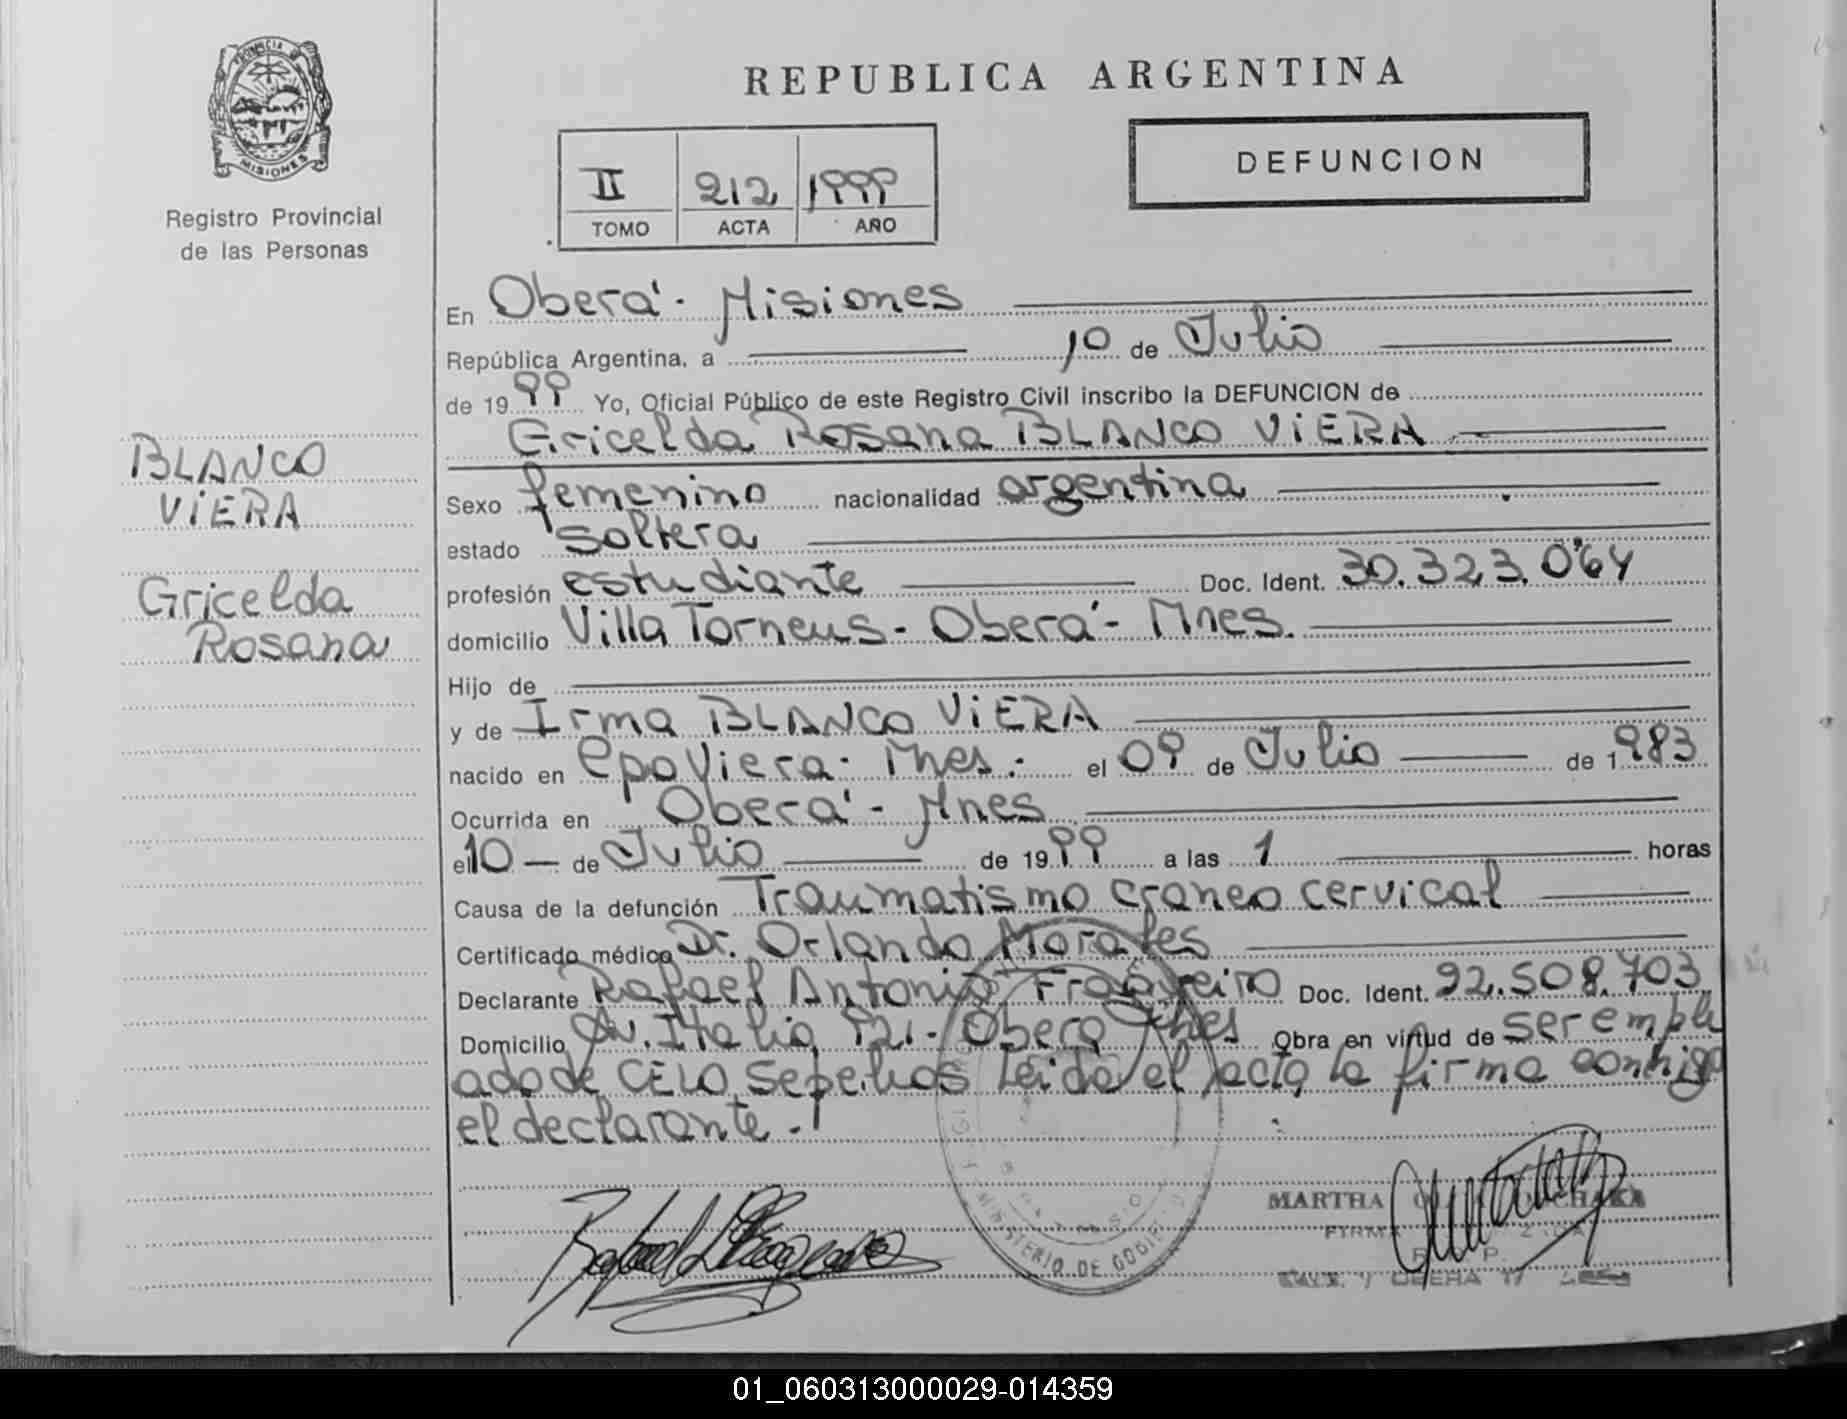 PROVINCIA DE
MISIONES
Registro Provincial
de las Personas
BLANCO
VIERA
Gricelda
Rosana
REPUBLICA ARGENTINA
II 212 1999
TOMO ACTA AÑO
DEFUNCION
En Oberá - Misiones
República Argentina, a 10 de Julio
de 1999 Yo, Oficial Público de este Registro Civil inscribo la DEFUNCION de
Gricelda Rosana BLANCO VIERA
Sexo femenino nacionalidad argentina
estado soltera
profesión estudiante Doc. Ident. 30.323.064
domicilio Villa Torneus - Oberá - Mnes.
Hijo de
y de Irma BLANCO VIERA
nacido en Cpo Viera - Mnes. el 09 de Julio de 1983
Ocurrida en Oberá - Mnes
el 10 de Julio de 1999 a las 1 horas
Causa de la defunción Traumatismo craneo cervical
Certificado médico Dr. Orlando Morales
Declarante Rafael Antonio Doc. Ident. 92.508.703
Domicilio Av. Italia - Obera Mnes Obra en virtud de ser empli
ado de CELO Sepelios Leida el acta la firma conmigo
el declarante.
MINISTERIO DE GOBIER
MARTHA
FIRMA
01_060313000029-014359